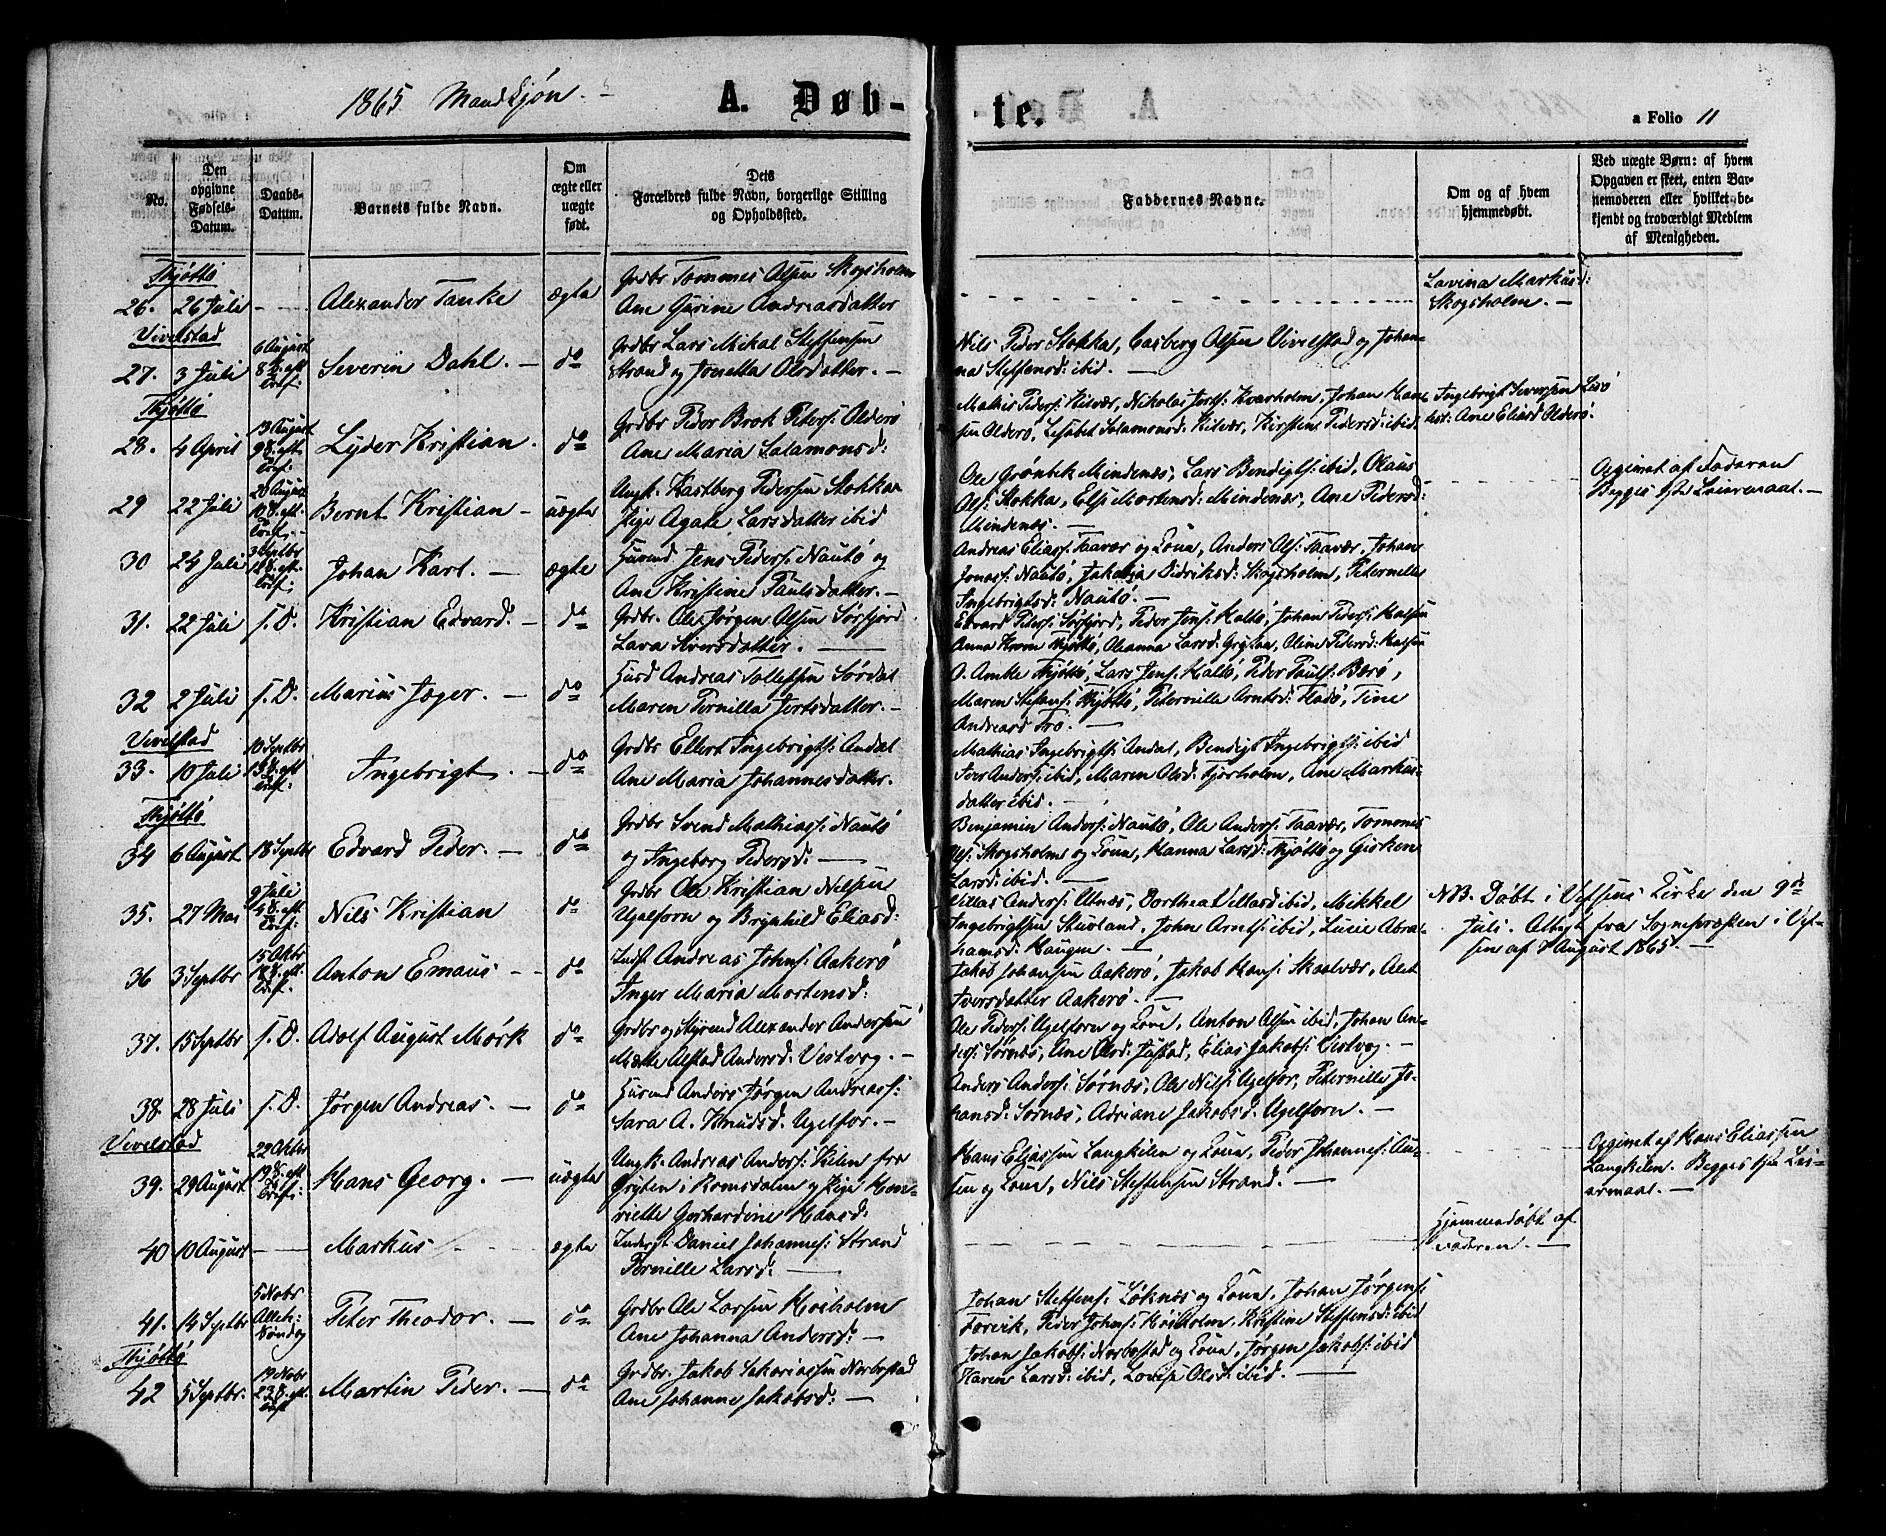 1865 Mandkjøn.
A. Døb-
te.
a Folio 11
No.
Den opgivne Fødsels-Datum.
Daabs-Datum.
Barnets fulde Navn.
Om ægte eller uægte født.
Dets Forældres fulde Navn, borgerlige Stilling og Opholdssted.
Faddernes Navne.
Om og af hvem hjemmedøbt.
Ved uægte Børn: af hvem Opgaven er skeet, enten Barnemoderen eller hvilket bekjendt og troværdigt Medlem af Menigheden.
Thjøttø
26. 26 Juli - Alexander Tanke ægte Grdbr Tommes Olsen Skogsholm
Ane Gurine Andreasdatter
Lavina Markusd:
Skogsholm. -
Vivelstad
27. 3 Juli 6 August 8 S. eft. Tref: Severin Dahl. - do Grdbr Lars Mikal Steffensen
Strand og Jonetta Olsdatter. -
Nils Peder Stokka, Casberg Olsen Vivelstad og Johan-
na Steffensd: ibid. -
Thjøttø
28. 4 April 13 August 9 S. eft. Tref: Lyder Kristian. do Grdbr Peder Brok Peters: Alderø
Ane Maria Salamonsd:
Mathis Peders: Kilvær, Nikolai Jerts: Kvarholm, Johan Han-
sen Olderø, Lisabet Salamonsd: Kilvær, Kirstine Pedersd: ibid.
Ingebrigt Seversen Lisø
Ane Eliasd Olderø.
29 22 Juli 20 August 10 S. eft. Tref: Bernt Kristian - uægte Ungk. Kastberg Pedersen Stokka
Pige Agate Larsdatter ibid
Ole Grønbek Mindenæs, Lars Bendigts: ibid, Olaus
Ols: Stokka, Else Mortensd: Mindenæs, Ane Pedersd:
Mindenæs. -
Opgivet af Faderen
Begges 1ste Leiermaal. -
30 24 Juli 3 Septbr 12 S. eft. Tref: Johan Karl. - ægte Husmd Jens Peders: Nautø og
Ane Kristine Paulsdatter. -
Andreas Eliass: Taavær og Kone, Anders Ols: Taavær, Johan
Jonass: Nautø, Jakobia Didriksd: Skogsholm, Peternille
Ingebrigtsd: Nautø. -
31. 22 Juli S. D. Kristian Edvard. - do Grdbr. Ole Jørgen Olsen Sørfjord
Lava Iversdatter. -
Edvard Peders: Sørfjord, Peder Jens: Kaltø, Johan Peders:
Anna Thjøttø, Oleanna Larsd: Oline Pedersd:
32 2 Juli S. D. Marius Jæger. - do Husd Andreas Tollefsen Sørdal
Maren Pernilla Jertsdatter. -
O. Amke Thjøttø, Lars Jens: Kaltø, Peder Pauls: Barø,
Maren Stefens: Thjøttø, Peternille Arntsd: Fladø, Tine
Andreasd Trø. -
Vivelstad
33. 10 Juli 10 Septbr 13 S. eft Tref: Ingebrigt. - do Grdbr Ellert Ingebrigts: Andal
Ane Maria Johannesdatter.
Mathias Ingebrigts: Andal, Bendigt Ingebrigts: ibid
Iver Anders: ibid, Maren Olsd: Fjorholm, Ane Markus-
datter ibid. -
Thjøttø
34 6 August 18 Septbr Edvard Peder. - do Grdbr Svend Mathiass: Nautø
og Ingeborg Pedersd: -
Benjamin Anders: Nautø, Ole Anders: Taavær, Tommes
Ols: Skogsholm og Kone, Hanna Larsd: Thjøttø og Girken
Larsd: ibid. -
35. 27 Mai 9 Juli 4 S. eft. Tref: Nils Kristian do Grdbr Ole Kristian Nilsen
Ugelforn og Brynhild Eliasd:
Villas Anders: Alnæs, Dorthea Villasd ibid, Mikkel
Ingebrigtsen Stuvland, John Arnts: ibid, Lucie Abra-
hamsd: Haugen. -
NB. Døbt i Vefsens Kirke den 9de
Juli. Attest fra Sognepræsten i Vef-
sen af August 1865. -
36 3 Septbr 15 Oktbr 18 S. eft. Tref. Anton Emaus - do Indst Andreas Johns: Aakerø
Inger Maria Mortensd:
Jakob Johansen Aakerø, Jakob Hans: Skaalvær, Alet
Iversdatter Aakerø. -
37. 15 Septbr S. D. Adolf August Mørk do Grdbr og Styrmd Alexander Andersen
Mætte Alstad Andersd: Vestvog. -
Ole Peders: Ugelforn og Kone, Anton Olsen ibid, Johan An-
ders: Sørnæs, Ane Olsd: Elias Jakobs: Vestvog. -
38. 28 Juli S. D. Jørgen Andreas. - do Husmd Anders Jørgen Andreass:
Sara A. Knudsd. Ugelfor. -
Anders Anders: Sørnæs, Ole Nils: Ugelfor, Peternille Jo-
hansd: Sørnæs, Adriane Jakobsd. Ugelforn. -
Vivelstad
39. 29 August 22 Oktbr 19 S. eft Tref: Hans Georg. - uægte Ungk. Andreas Anders: Kilen fra
Gryten i Romsdalen og Pige Hen-
riette Gerhardine Hansd:
Hans Eliassen Langkilen og Kone, Peder Johannes: Au-
sen og Kone, Nils Steffensen Strand. -
Opgivet af Hans Eliassen
Langkilen. Begges 1ste Lei-
ermaal. -
40 10 August - Markus ægte Inderst Daniel Johannes: Strand
Pernille Larsd: -
Hjemmedøbt af
Faderen. -
41. 14 Septbr 5 Novbr Alleh: Søndag Peter Theodor. - do Grdbr Ole Larsen Høiholm
Ane Johanna Andersd: -
Johan Steffens: Løknæs og Kone, Johan Jørgens:
Forvik, Peder Johns: Høiholm, Kristine Steffensd: ibid
Thjøttø
42 5 Septbr. 19 Novbr 23 S. eft. Tref Martin Peder. - do Grdbr. Jakob Sakariassen Norbostad
Ane Johanne Jakobsd: -
Johan Jakobs: Norbostad og Kone, Jørgen Jakobs: ibid
Karen Larsd: ibid, Lovise Olsd: ibid. -